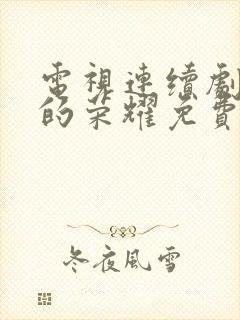 電視連續劇
的荣耀免費
冬夜風雪